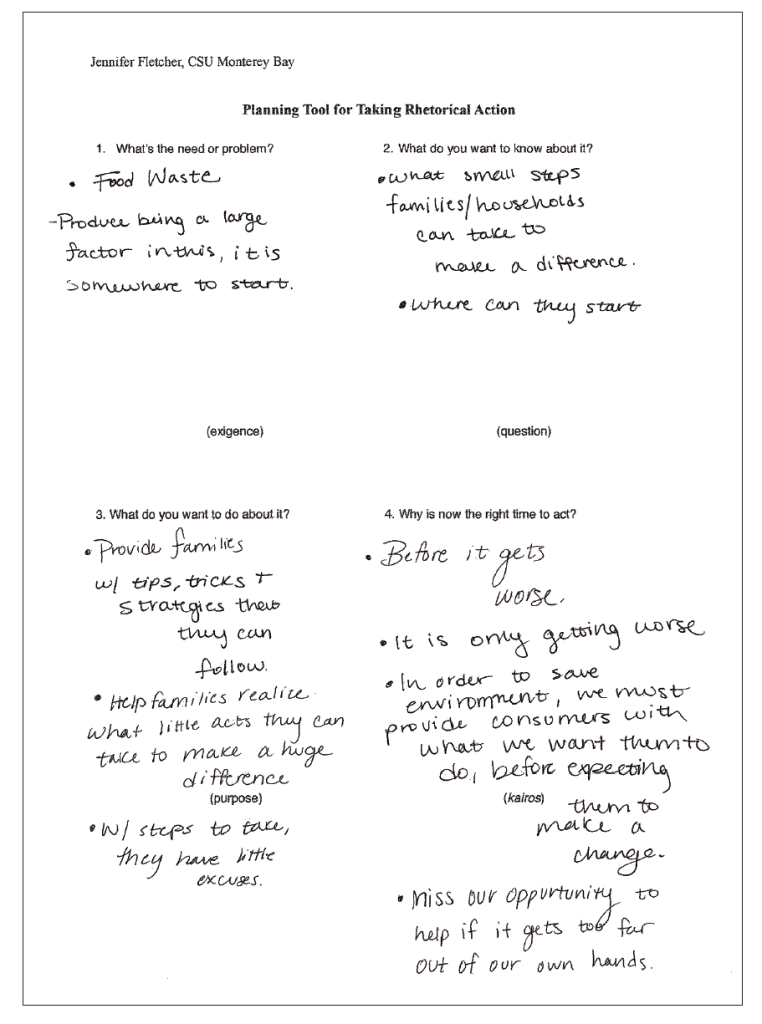 Jennifer Fletcher, CSU Monterey Bay
Planning Tool for Taking Rhetorical Action
1. What's the need or problem?
• Food Waste
-Produce being a large
factor in this, it is
somewhere to start.
(exigence)
2. What do you want to know about it?
• what small steps
families/households
can take to
make a difference.
• where can they start
(question)
3. What do you want to do about it?
• Provide families
w/ tips, tricks +
strategies that
they can
follow.
• Help families realize
what little acts they can
take to make a huge
difference
(purpose)
• W/ steps to take,
they have little
excuses.
4. Why is now the right time to act?
• Before it gets
worse.
• It is only getting worse
• In order to save
environment, we must
provide consumers with
what we want them to
do, before expecting
(kairos) them to
make a
change.
• Miss our oppurtunity to
help if it gets too far
out of our own hands.